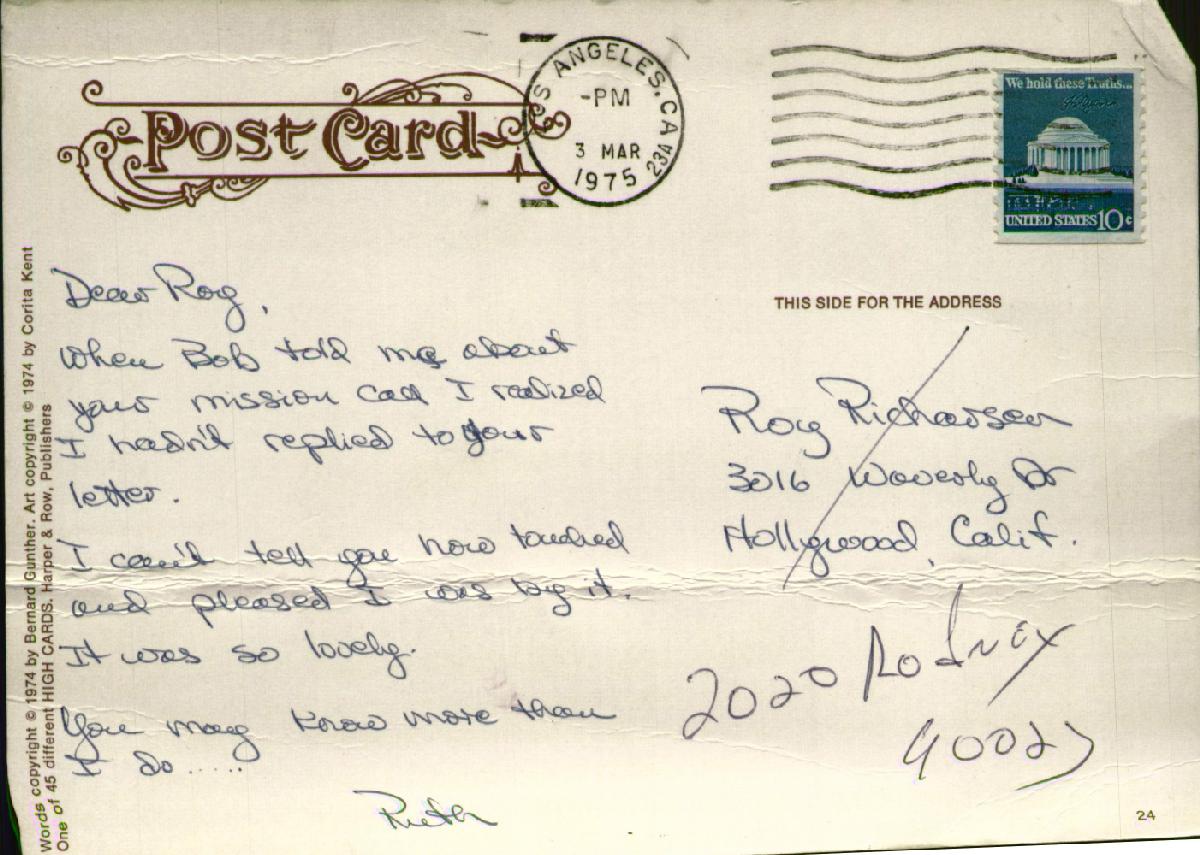 Post Card
S ANGELES, CA 23A
-PM
3 MAR
1975
We hold these Truths...
UNITED STATES 10¢
THIS SIDE FOR THE ADDRESS
Dear Roy,
When Bob told me about
your mission call I realized
I hadn't replied to your
letter.
I can't tell you how touched
and pleased I was by it.
It was so lovely.
You may know more than
I do.....
Ruth
Roy Richardson
3016 Waverly Dr
Hollywood, Calif.
2020 Rodney
90027
Words copyright © 1974 by Bernard Gunther. Art copyright © 1974 by Corita Kent
One of 45 different HIGH CARDS. Harper & Row, Publishers
24